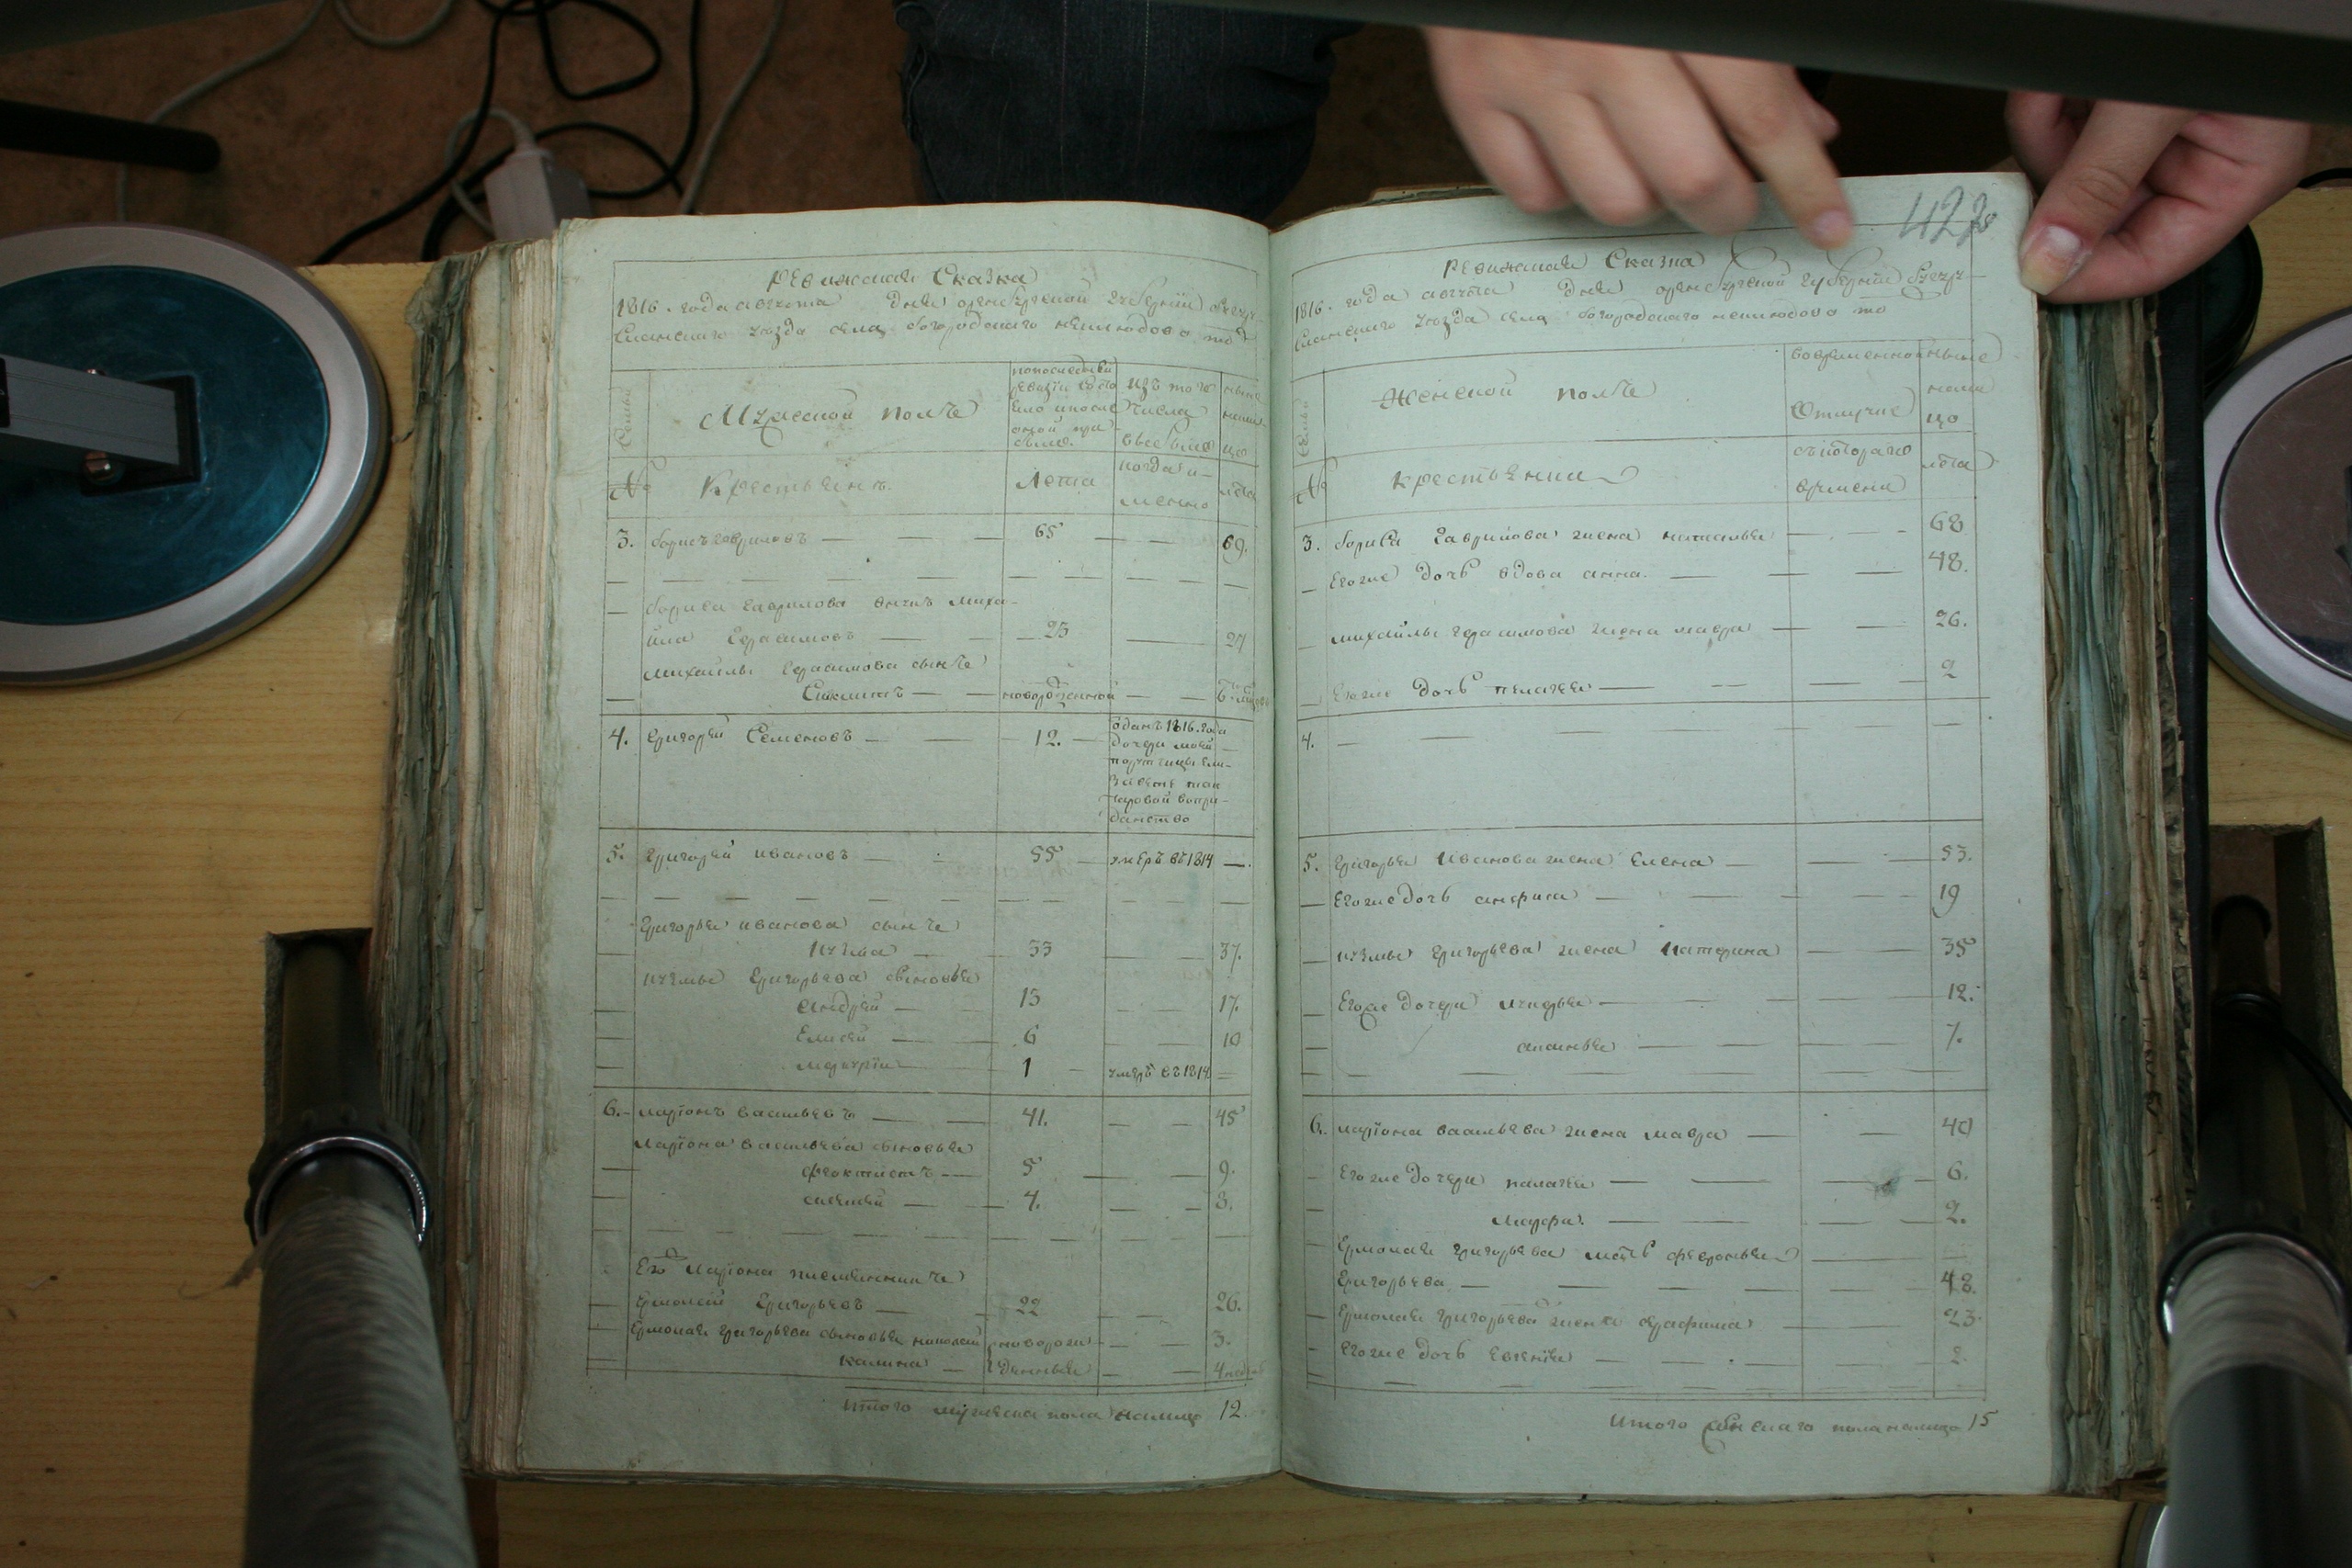 Ревижская Сказка
1816. года августа дня оренбургской губернии бугуру-
сланского уезда села богородского неклюдово то
Семьи
Мужеской полъ
попоследней
ревизiи состо
яло и после
оной при
было.
изъ того
числа
выбыло
ныне
на ли
цо
№
Крестьянъ.
Лета
когда и-
менно
лета
3. борисъ гавриловъ — — 65 — — 69.
бориса гаврилова внукъ миха-
йла Герасимовъ — — 23 — 27
михайлы герасимова сынъ
— — новорожденной — — 6.
4. григорей Семеновъ — — 12. — отданъ 1816. года
дочери моей
порутчицы ели-
завете
в при-
данство
5. григорей ивановъ — 55 — умеръ въ 1814 —.
григорья иванова сынъ
кузма — 33 — 37.
кузмы григорьева сыновья
андрей — 13 — 17.
Елисей — 6 — 10
1 — умеръ въ 1812 —
6. ларiонъ васильевъ — 41. — 45
ларiона васильева сыновья
феоктистъ — 5 — 9.
алексей — 4. — 8.
Его ларiона племянникъ
ермолай григорьевъ — 22 — 26.
ермолая григорьева сыновья николай новорож- — 3.
калина — денныя — 4 недель
итого мужеска пола налицо 12.
422
Ревижская Сказка
1816. года августа дня оренбургской губернии бугуру-
сланского уезда села богородского неклюдово то
Семьи
Женской полъ
во временной
Отлучке
ныне
нали
цо
№
крестьянки
съ котораго
времени
лета
3. бориса гаврилова жена наталья — — 68
— Егоже дочь вдова анна. — — 48.
— михайлы герасимова жена мавра — 26.
— Егоже дочь пелагея — — 2
4. — — — —
5. григорья иванова жена Елена — — 53.
— Егоже дочь анфиса — — 19
— кузмы григорьева жена катерина — 35
— Егоже дочери лукерья — — 12.
— ананья — — 7.
6. ларiона васильева жена мавра — — 40
— Егоже дочери палагея — — 6.
— марфа. — — 2.
ермолая григорьева мать февронья
григорьева — — 48.
— ермолая григорьева жена серафима — 23.
— Егоже дочь евгенiя — . — 2.
Итого женскаго пола налицо 15